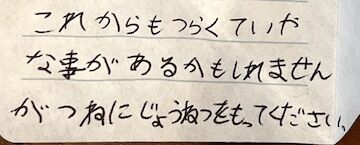 これからもつらくていや
な事があるかもしれません
がつねにじょうねつをもってください。